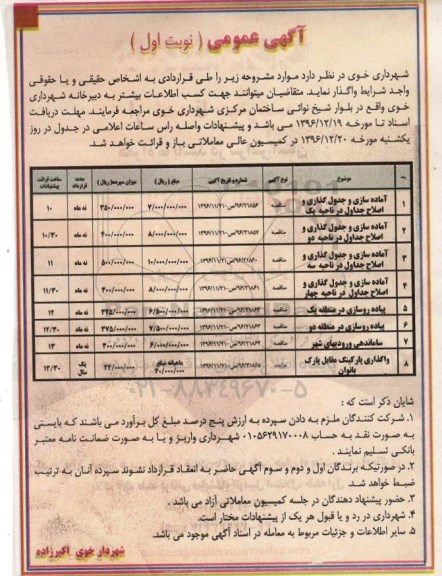 آگهی عمومی ( نوبت اول )
شهرداری خوی در نظر دارد موارد مشروحه زیر را طی قراردادی به اشخاص حقیقی و یا حقوقی
واجد شرایط واگذار نماید. متقاضیان میتوانند جهت کسب اطلاعات بیشتر به دبیرخانه شهرداری
خوی واقع در بلوار شیخ نوائی ساختمان مرکزی شهرداری خوی مراجعه فرمایند. مهلت دریافت
اسناد تا مورخه ۱۳۹۶/۱۲/۱۹ می باشد و پیشنهادات واصله راس ساعات اعلامی در جدول در روز
یکشنبه مورخه ۱۳۹۶/۱۲/۲۰ در کمیسیون عالی معاملاتی باز و قرائت خواهد شد.
موضوع نوع آگهی شماره و تاریخ آگهی مبلغ ( ریال ) میزان سپرده( ریال ) مدت قرارداد ساعت قرائت پیشنهادات
۱ آماده سازی و جدول گذاری و اصلاح جداول در ناحیه یک مناقصه ۷/۰۰۰/۰۰۰/۰۰۰ ۳۵۰/۰۰۰/۰۰۰ نه ماه ۱۰
۲ آماده سازی و جدول گذاری و اصلاح جداول در ناحیه دو مناقصه ۸/۰۰۰/۰۰۰/۰۰۰ ۴۰۰/۰۰۰/۰۰۰ نه ماه ۱۰/۳۰
۳ آماده سازی و جدول گذاری و اصلاح جداول در ناحیه سه مناقصه ۱۰/۰۰۰/۰۰۰/۰۰۰ ۵۰۰/۰۰۰/۰۰۰ نه ماه ۱۱
۴ آماده سازی و جدول گذاری و اصلاح جداول در ناحیه چهار مناقصه ۸/۰۰۰/۰۰۰/۰۰۰ ۴۰۰/۰۰۰/۰۰۰ نه ماه ۱۱/۳۰
۵ پیاده روسازی در منطقه یک مناقصه ۶/۵۰۰/۰۰۰/۰۰۰ ۳۲۵/۰۰۰/۰۰۰ نه ماه ۱۲
۶ پیاده روسازی در منطقه دو مناقصه ۷/۵۰۰/۰۰۰/۰۰۰ ۳۷۵/۰۰۰/۰۰۰ نه ماه ۱۲/۳۰
۷ ساماندهی ورودیهای شهر مناقصه ۶/۰۰۰/۰۰۰/۰۰۰ ۳۰۰/۰۰۰/۰۰۰ نه ماه ۱۳
۸ واگذاری پارکینگ مقابل پارک بانوان مزایده ماهیانه مبلغ ۴۰/۰۰۰/۰۰۰ ۲۴/۰۰۰/۰۰۰ یک سال ۱۳/۳۰
شایان ذکر است که :
۱. شرکت کنندگان ملزم به دادن سپرده به ارزش پنج درصد مبلغ کل برآورد می باشند که بایستی
به صورت نقد به حساب ۰۱۰۵۶۲۹۱۷۰۰۰۸ شهرداری واریز و یا به صورت ضمانت نامه معتبر
بانکی تسلیم نمایند .
۲. در صورتیکه برندگان اول و دوم و سوم آگهی حاضر به انعقاد قرارداد نشوند سپرده آنان به ترتیب
ضبط خواهد شد.
۳. حضور پیشنهاد دهندگان در جلسه کمیسیون معاملاتی آزاد می باشد .
۴. شهرداری در رد و یا قبول هر یک از پیشنهادات مختار است.
۵. سایر اطلاعات و جزئیات مربوط به معامله در اسناد آگهی موجود می باشد.
شهردار خوی اکبرزاده